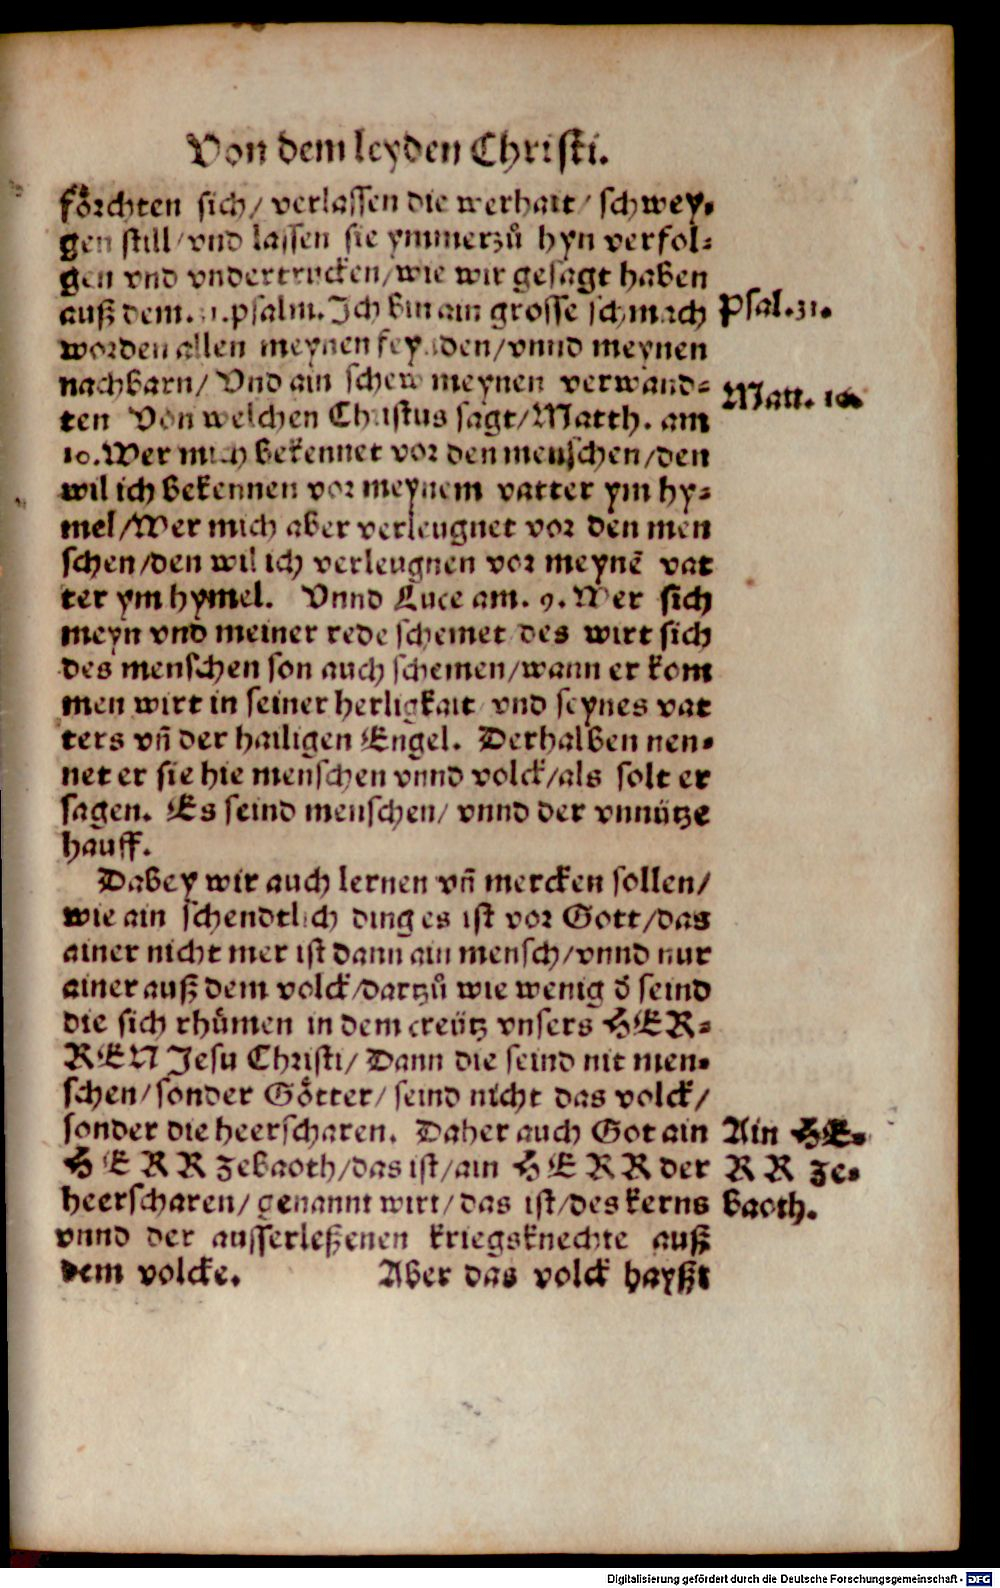 Von dem leyden Christi.
foͤrchten sich/ verlassen die werhait/ schwey-
gen still/vnd lassen sie ymmerzuͦ hyn verfol-
gen vnd vndertrucken/wie wir gesagt haben
auß dem. 31. psalm. Ich bin ain grosse schmach
Psal. 31.
worden allen meynen feynden/vnnd meynen
nachbarn/ Vnd ain schew meynen verwand-
Matt. 10.
ten Von welchen Christus sagt/Matth. am
10. Wer mich bekennet vor den menschen/den
wil ich bekennen vor meynem vatter ym hy-
mel/Wer mich aber verleugnet vor den men
schen/den wil ich verleugnen vor meynē vat
ter ym hymel. Vnnd Luce am. 9. Wer sich
meyn vnd meiner rede schemet des wirt sich
des menschen son auch schemen/wann er kom
men wirt in seiner herligkait vnd seynes vat
ters vñ der hailigen Engel. Derhalben nen-
net er sie hie menschen vnnd volck/als solt er
sagen. Es seind menschen/ vnnd der vnnütze
hauff.
Dabey wir auch lernen vñ mercken sollen/
wie ain schendtlich ding es ist vor Gott/das
ainer nicht mer ist dann ain mensch/vnnd nur
ainer auß dem volck/dartzuͦ wie wenig d̄ seind
die sich rhuͤmen in dem creütz vnsers HER-
REN Jesu Christi/ Dann die seind nit men-
schen/sonder Goͤtter/ seind nicht das volck/
sonder die heerscharen. Daher auch Got ain
Ain HE-
HERR zebaoth/das ist/ain HERR der
RR ze-
heerscharen/ genannt wirt/das ist/des kerns
baoth.
vnnd der ausserleßenen kriegsknechte auß
dem volcke. Aber das volck hayßt
Digitalisierung gefördert durch die Deutsche Forschungsgemeinschaft - DFG